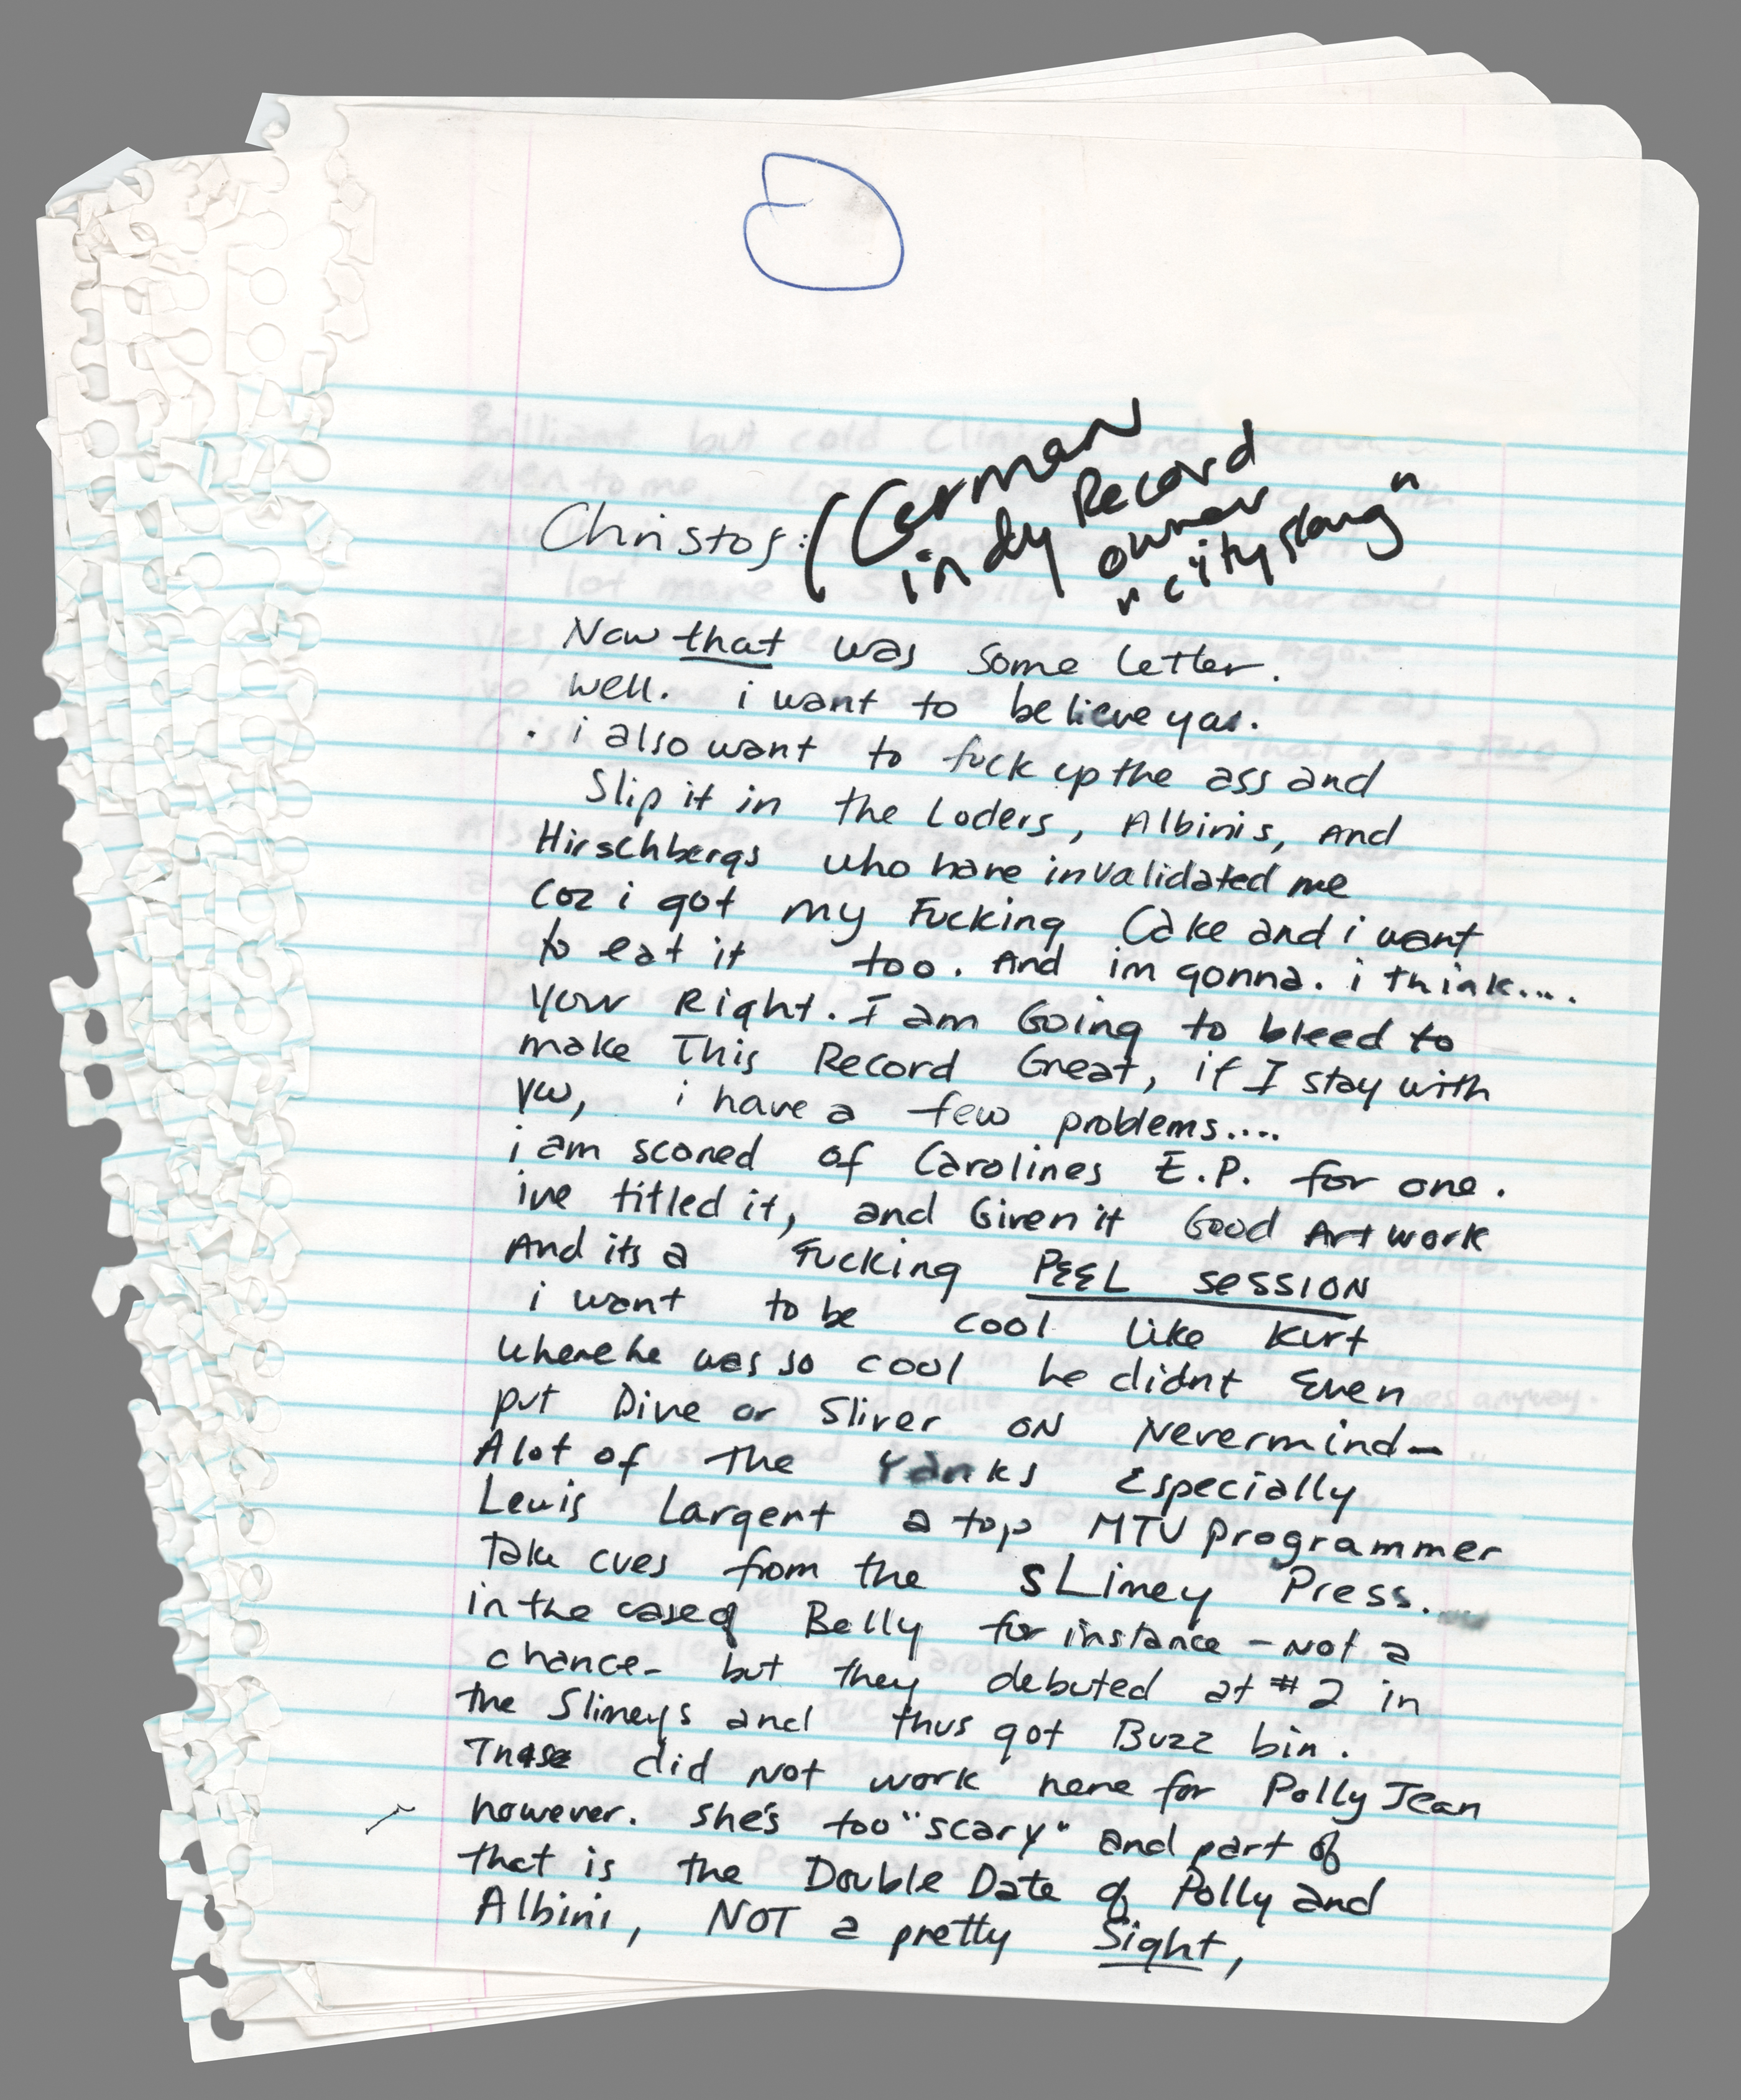 Christof: (German
indy Record
owner
"city slang"
Now that was some letter.
well. i want to believe you.
. i also want to fuck up the ass and
Slip it in the Loders, Albinis, And
Hirschbergs who have invalidated me
coz i got my Fucking Cake and i want
to eat it too. And im gonna. i think....
your Right. I am Going to bleed to
make This Record Great, if I stay with
yw, i have a few problems....
i am scared of Carolines E.P. for one.
ive titled it, and Given it Good Artwork
And its a Fucking PEEL SESSION
i want to be cool like Kurt
where he was so cool he didnt Even
put Dive or Sliver ON Nevermind—
A lot of the Yanks Especially
Lewis Largent a top MTV programmer
Take cues from the sLimey Press.
in the case of Belly for instance - Not a
chance - but they debuted at #2 in
the Slimeys and thus got Buzz bin.
These did not work here for Polly Jean
however. she's too "scary" and part of
that is the Double Date of Polly and
Albini, NOT a pretty Sight,